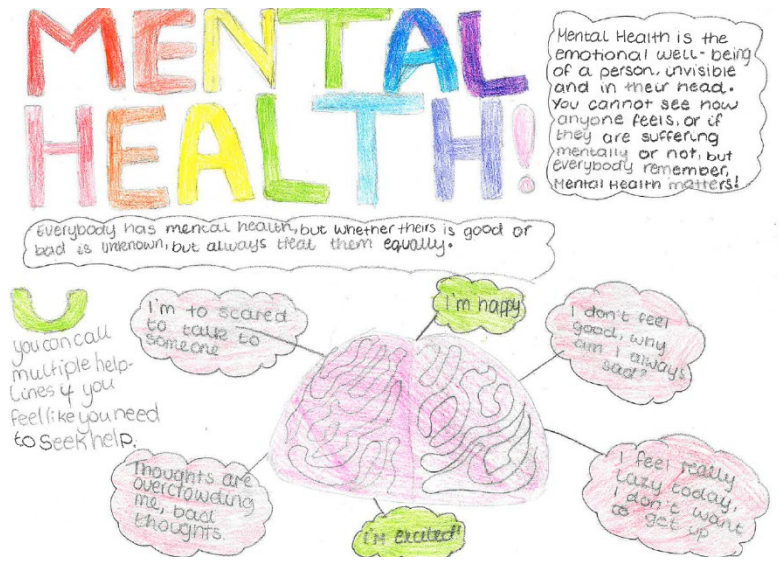 MENTAL
HEALTH!
Mental Health is the
emotional well-being
of a person, invisible
and in their head.
You cannot see how
anyone feels, or if
they are suffering
mentally or not, but
everybody remember,
Mental Health matters!
Everybody has mental health, but whether theirs is good or
bad is unknown, but always treat them equally.
you can call
multiple help-
lines if you
feel like you need
to seek help.
I'm to scared
to talk to
someone
I'm happy
I don't feel
good, why
am I always
sad?
Thoughts are
overcrowding
me, bad
thoughts.
I'm excited!
I feel really
lazy today,
I don't want
to get up